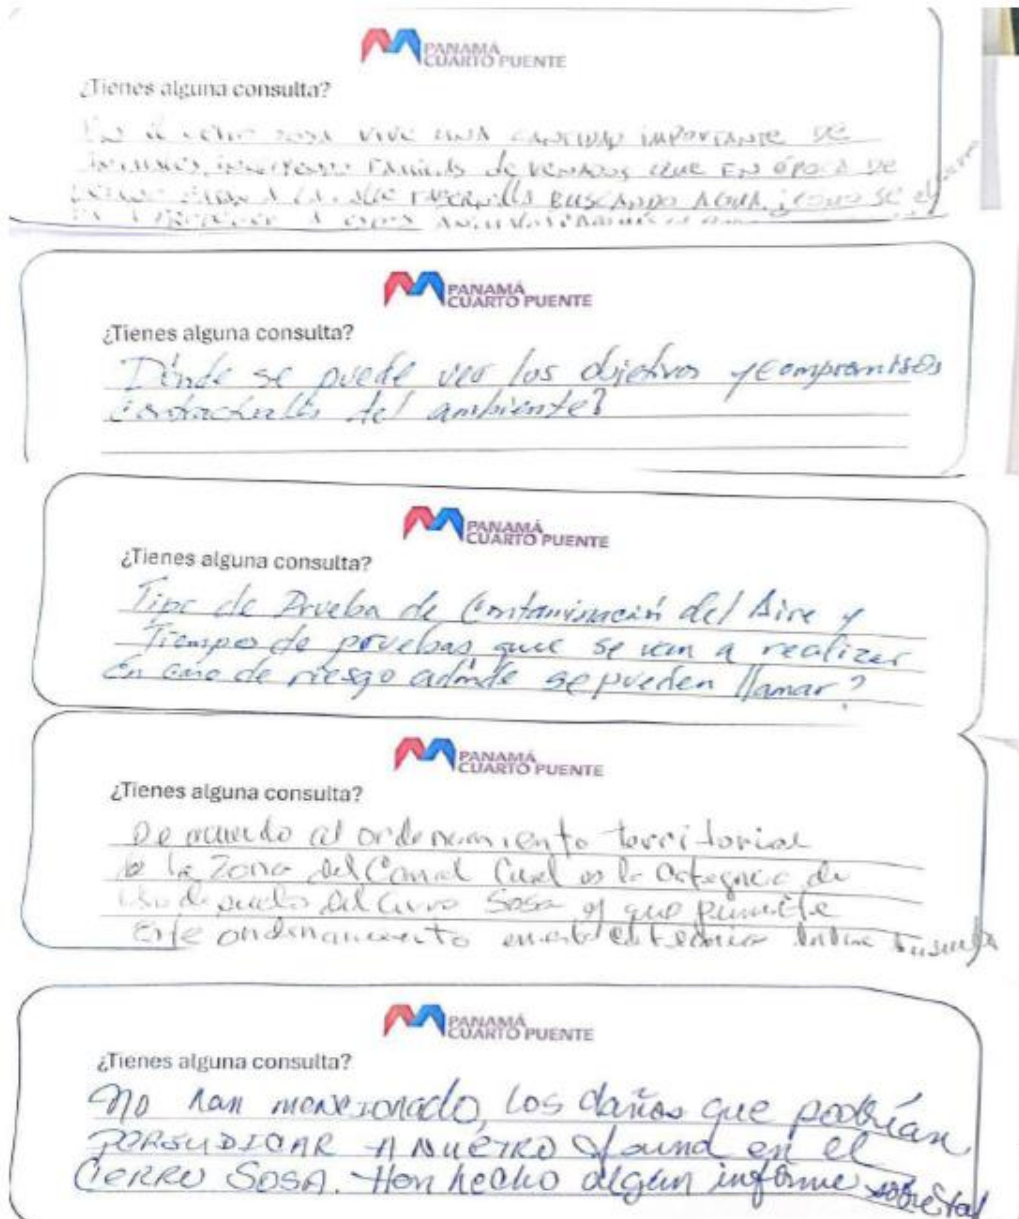 PANAMÁ
CUARTO PUENTE
¿Tienes alguna consulta?
sosa vive una cantidad importante de
familias de venados que en época de
buscando agua. ¿como se
PANAMÁ
CUARTO PUENTE
¿Tienes alguna consulta?
Dónde se puede ver los objetivos y compromisos
contractuales del ambiente?
PANAMÁ
CUARTO PUENTE
¿Tienes alguna consulta?
Tipo de Prueba de Contaminación del Aire y
Tiempo de pruebas que se van a realizar
en caso de riesgo adonde se pueden llamar?
PANAMÁ
CUARTO PUENTE
¿Tienes alguna consulta?
De acuerdo al ordenamiento territorial
de la Zona del Canal Cual es la Categoria de
Uso de suelo del Cerro Sosa y que permite
Este ordenamiento en esta
PANAMÁ
CUARTO PUENTE
¿Tienes alguna consulta?
No han mencionado, los daños que podrían
PERJUDICAR A NUETRO en el
CERRO SOSA. Han hecho algún informe sobre tal